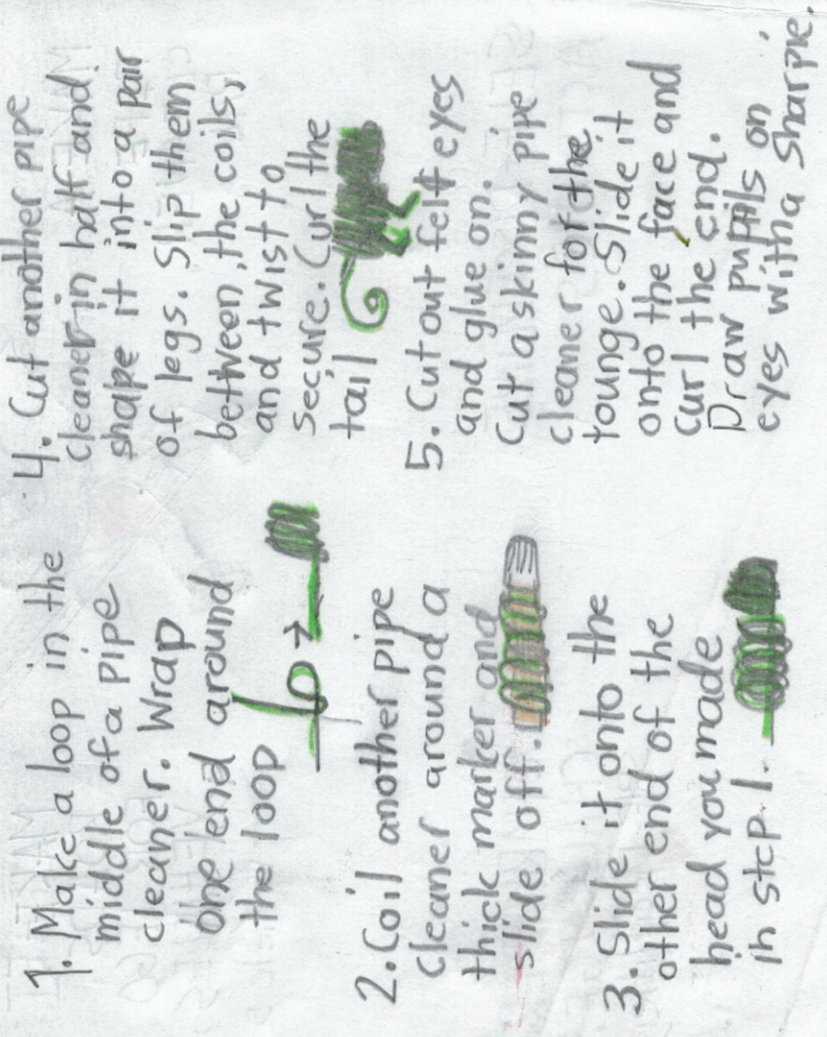 1. Make a loop in the
middle of a pipe
cleaner. Wrap
one end around
the loop
2. Coil another pipe
cleaner around a
thick marker and
slide off.
3. Slide it onto the
other end of the
head you made
in step 1.
4. Cut another pipe
cleaner in half and
shape it into a pair
of legs. Slip them
between the coils,
and twist to
secure. Curl the
tail
5. Cut out felt eyes
and glue on.
Cut a skinny pipe
cleaner for the
tounge. Slide it
onto the face and
curl the end.
Draw pupils on
eyes with a sharpie.